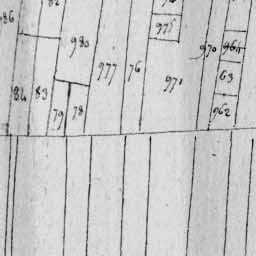 82
986
975
980
970
965
977
76
971
63
84
83
962
79
78